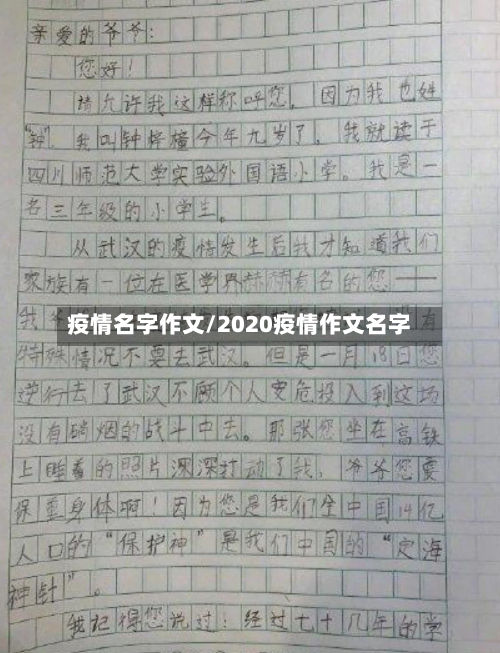 亲爱的爷爷：
您好！
请允许我这样称呼您，因为我也姓
“钟”，我叫钟梓橦今年九岁了，我就读于
四川师范大学实验外国语小学。我是一
名三年级的小学生。
从武汉的疫情发生后我才知道我们
家族有一位在医学界赫赫有名的您——
疫情名字作文/2020疫情作文名字
我 有
特殊情况不要去武汉。但是一月18日您
逆行去了武汉不顾个人安危投入到这场
没有硝烟的战斗中去。那张您坐在高铁
上睡着的照片深深打动了我，爷爷您要
保重身体啊！因为您是我们全中国14亿
人口的“保护神”是我们中国的“定海
神针”。
我记得您说过：经过七十几年的学